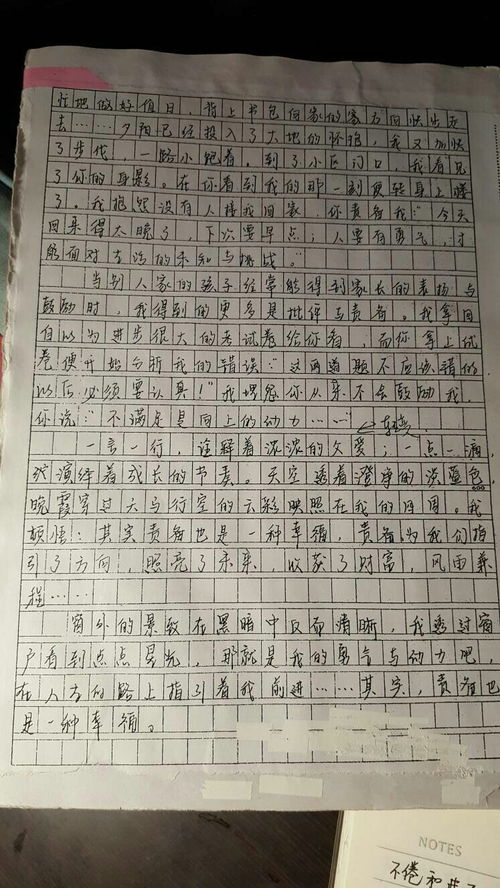 忙地做好值日，背上书包向家的家方向快步走
去……夕阳已经投入了大地的怀抱，我又加快
了步伐，一路小跑着。到了小区门口，我看见
了你的身影。在你看到我的那一刻便转身上楼
了。我抱怨没有人接我回家，你责备我：“今天
回来得太晚了，下次要早点；人要有勇气，才
能面对去路的未知与挑战。”
当别人家的孩子经常能得到家长的表扬与
鼓励时，我得到的更多是批评与责备。我拿回
自以为进步很大的考试卷给你看，而你拿上试
卷便开始分析我的错误：“这两道题不应该错的
以后必须要认真！”我埋怨你从来不会鼓励我，
你说：“不满足是向上的动力……”
←转变
一言一行，诠释着浓浓的父爱；一点一滴，
演绎着成长的节奏。天空透着澄净的淡蓝色，
晚霞穿过天马行空的云彩映照在我的四周。我
顿悟：其实责备也是一种幸福，责备为我们指
引了方向，照亮了未来，收获了财富，风雨兼
程……
窗外的景致在黑暗中反而清晰，我透过窗
户看到点点星光，那就是我的勇气与动力吧，
在人生的路上指引着我前进……其实，责备也
是一种幸福。
NOTES
不倦和